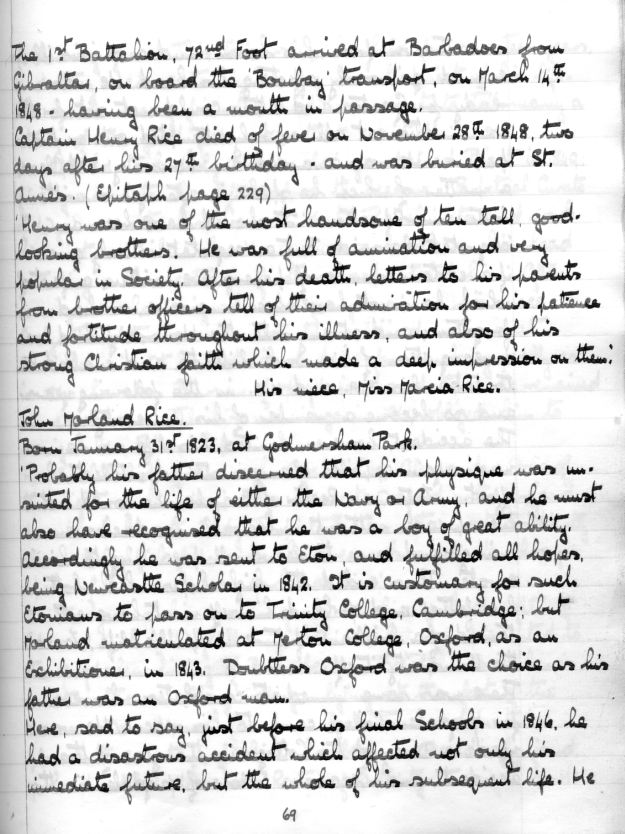 The 1st Battalion, 72nd Foot arrived at Barbadoes from
Gibraltar, on board the 'Bombay' transport, on March 14th
1848 - having been a month in passage.
Captain Henry Rice died of fever on November 28th 1848, two
days after his 27th birthday - and was buried at St.
Anne's. (Epitaph page 229)
'Henry was one of the most handsome of ten tall, good-
looking brothers. He was full of animation and very
popular in Society. After his death, letters to his parents
from brother officers tell of their admiration for his patience
and fortitude throughout his illness, and also of his
strong Christian faith which made a deep impression on them.'
His niece, Miss Marcia Rice.
John Morland Rice.
Born January 31st 1823, at Godmersham Park.
'Probably his father discerned that his physique was un-
suited for the life of either the Navy or Army, and he must
also have recognised that he was a boy of great ability.
Accordingly he was sent to Eton, and fulfilled all hopes,
being Newcastle Scholar in 1842. It is customary for such
Etonians to pass on to Trinity College, Cambridge; but
Morland matriculated at Merton College, Oxford, as an
Exhibitioner, in 1843. Doubtless Oxford was the choice as his
father was an Oxford man.
Here, sad to say, just before his final Schools in 1846, he
had a disastrous accident which affected not only his
immediate future, but the whole of his subsequent life. He
69